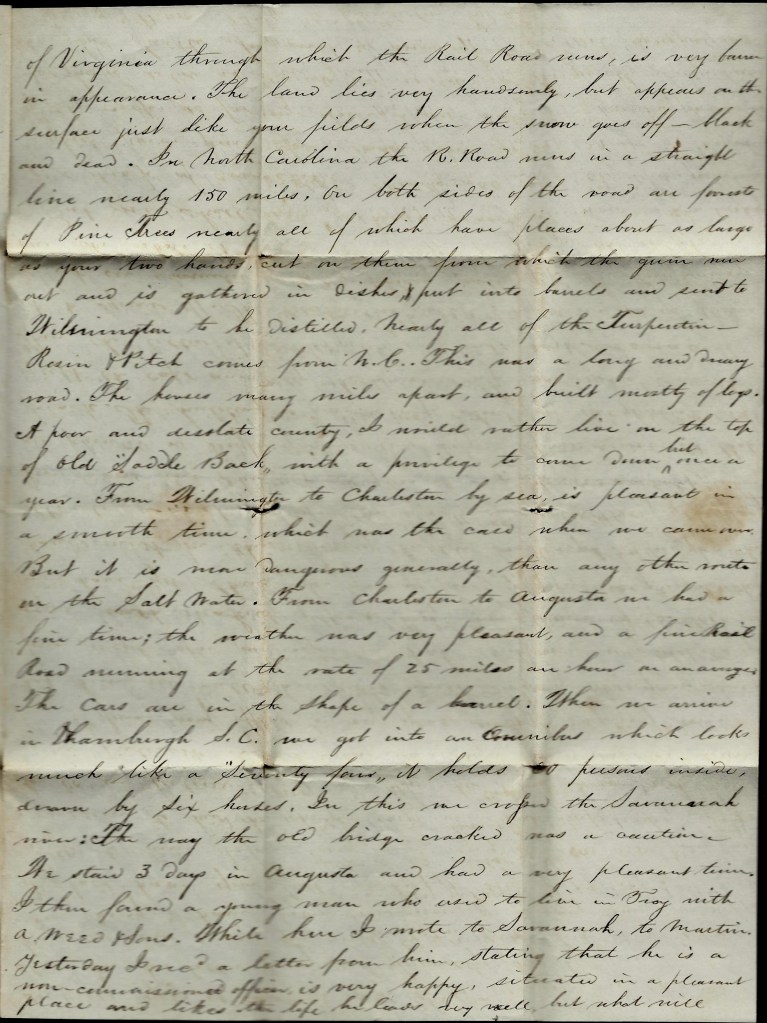 of Virginia through which the Rail Road runs, is very barren
in appearance. The land lies very handsomly, but appears on the
surface just like your fields when the snow goes off – black
and dead. In North Carolina the R. Road runs in a straight
line nearly 150 miles. On both sides of the road are forests
of Pine Trees nearly all of which have places about as large
as your two hands, cut on them from which the gum run
out and is gathered in dishes, & put into barrels and sent to
Wilmington to be distilled. Nearly all of the Turpentin –
Rosin & Pitch comes from N.C. This was a long and dreary
road. The houses many miles apart, and built mostly of logs.
A poor and desolate country, I would rather live on the top
of old "Saddle Back" with a privilege to come down but once a
year. From Wilmington to Charleston by sea, is pleasant in
a smooth time. which was the case when we came over.
But it is more dangerous generally, than any other route
on the Salt Water. From Charleston to Augusta we had a
fine time; the weather was very pleasant, and a fine Rail
Road running at the rate of 25 miles an hour on an average
The Cars are in the shape of a barrel. When we arrive
in Hamburgh S.C. we got into an Omnibus which looks
much like a "Seventy four" it holds persons inside,
drawn by six horses. In this we crossed the Savannah
river: The way the old bridge cracked was a caution.
We staid 3 days in Augusta and had a very pleasant time.
I then found a young man who used to live in Troy with
a Weed & Sons. While here I wrote to Savannah, to Martin.
Yesterday I recd a letter from him, stating that he is a
non-commissioned officer, is very happy, situated in a pleasant
place and likes the life he leads very well, but what will